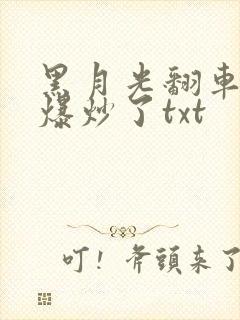 黑月光翻車
爆炒了txt
叮！斧頭來了